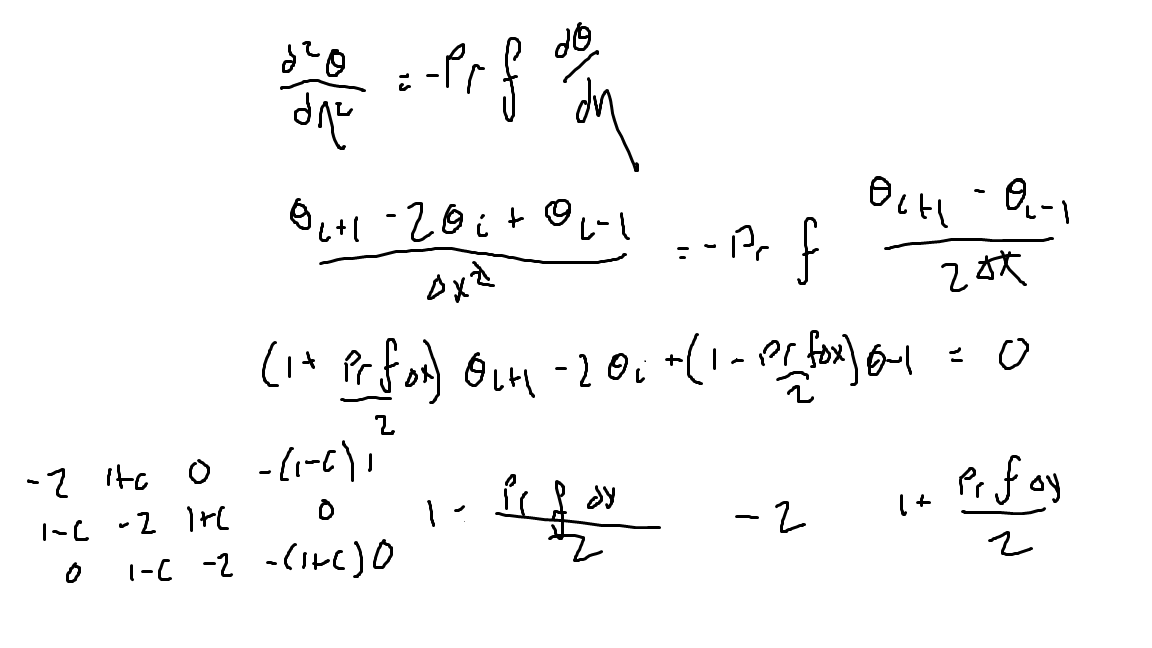 d²θ/dη² = -Pr f dθ/dη
(θ_{i+1} - 2θ_i + θ_{i-1})/Δx² = -Pr f (θ_{i+1} - θ_{i-1})/(2Δx)
(1 + Pr f Δx/2) θ_{i+1} - 2θ_i + (1 - Pr f Δx/2) θ-1 = 0
-2 1+c 0 -(1-c)1
1-c -2 1+c 0
0 1-c -2 -(1+c)0
1 - Pr f Δy/2 -2 1 + Pr f Δy/2